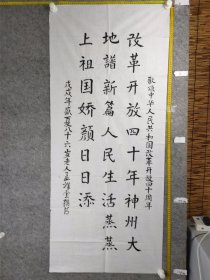 敬颂中华人民共和国改革开放四十周年
改革开放四十年神州大
地谱新篇人民生活蒸蒸
上祖国娇颜日日添
戊戌年岁首八十六岁老人